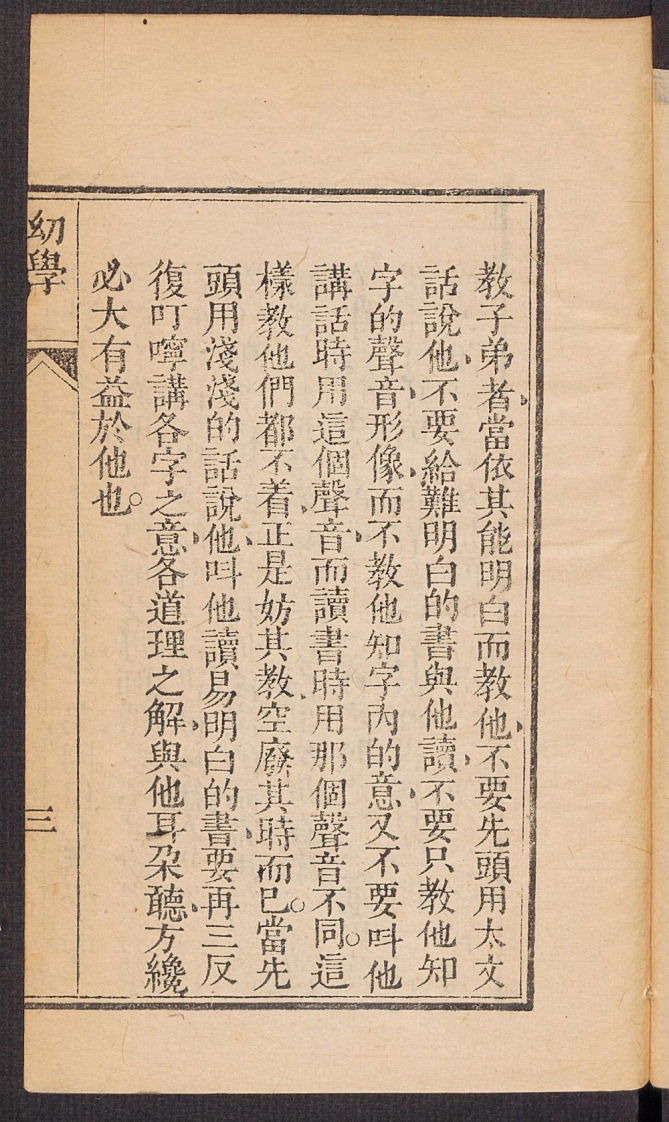 教子弟者、當依其能明白而教他、不要先頭用太文
話說他、不要給難明白的書與他讀、不要只教他知
字的聲音、形像、而不教他知字內的意、又不要呌他
講話時用這個聲音、而讀書時用那個聲音不同。這
樣教他們都不着、正是妨其教、空廢其時而已。當先
頭用淺淺的話說他、呌他讀易明白的書、要再三反
復叮嚀講各字之意、各道理之解、與他耳朶聽、方纔
必大有益於他也。
幼學
三